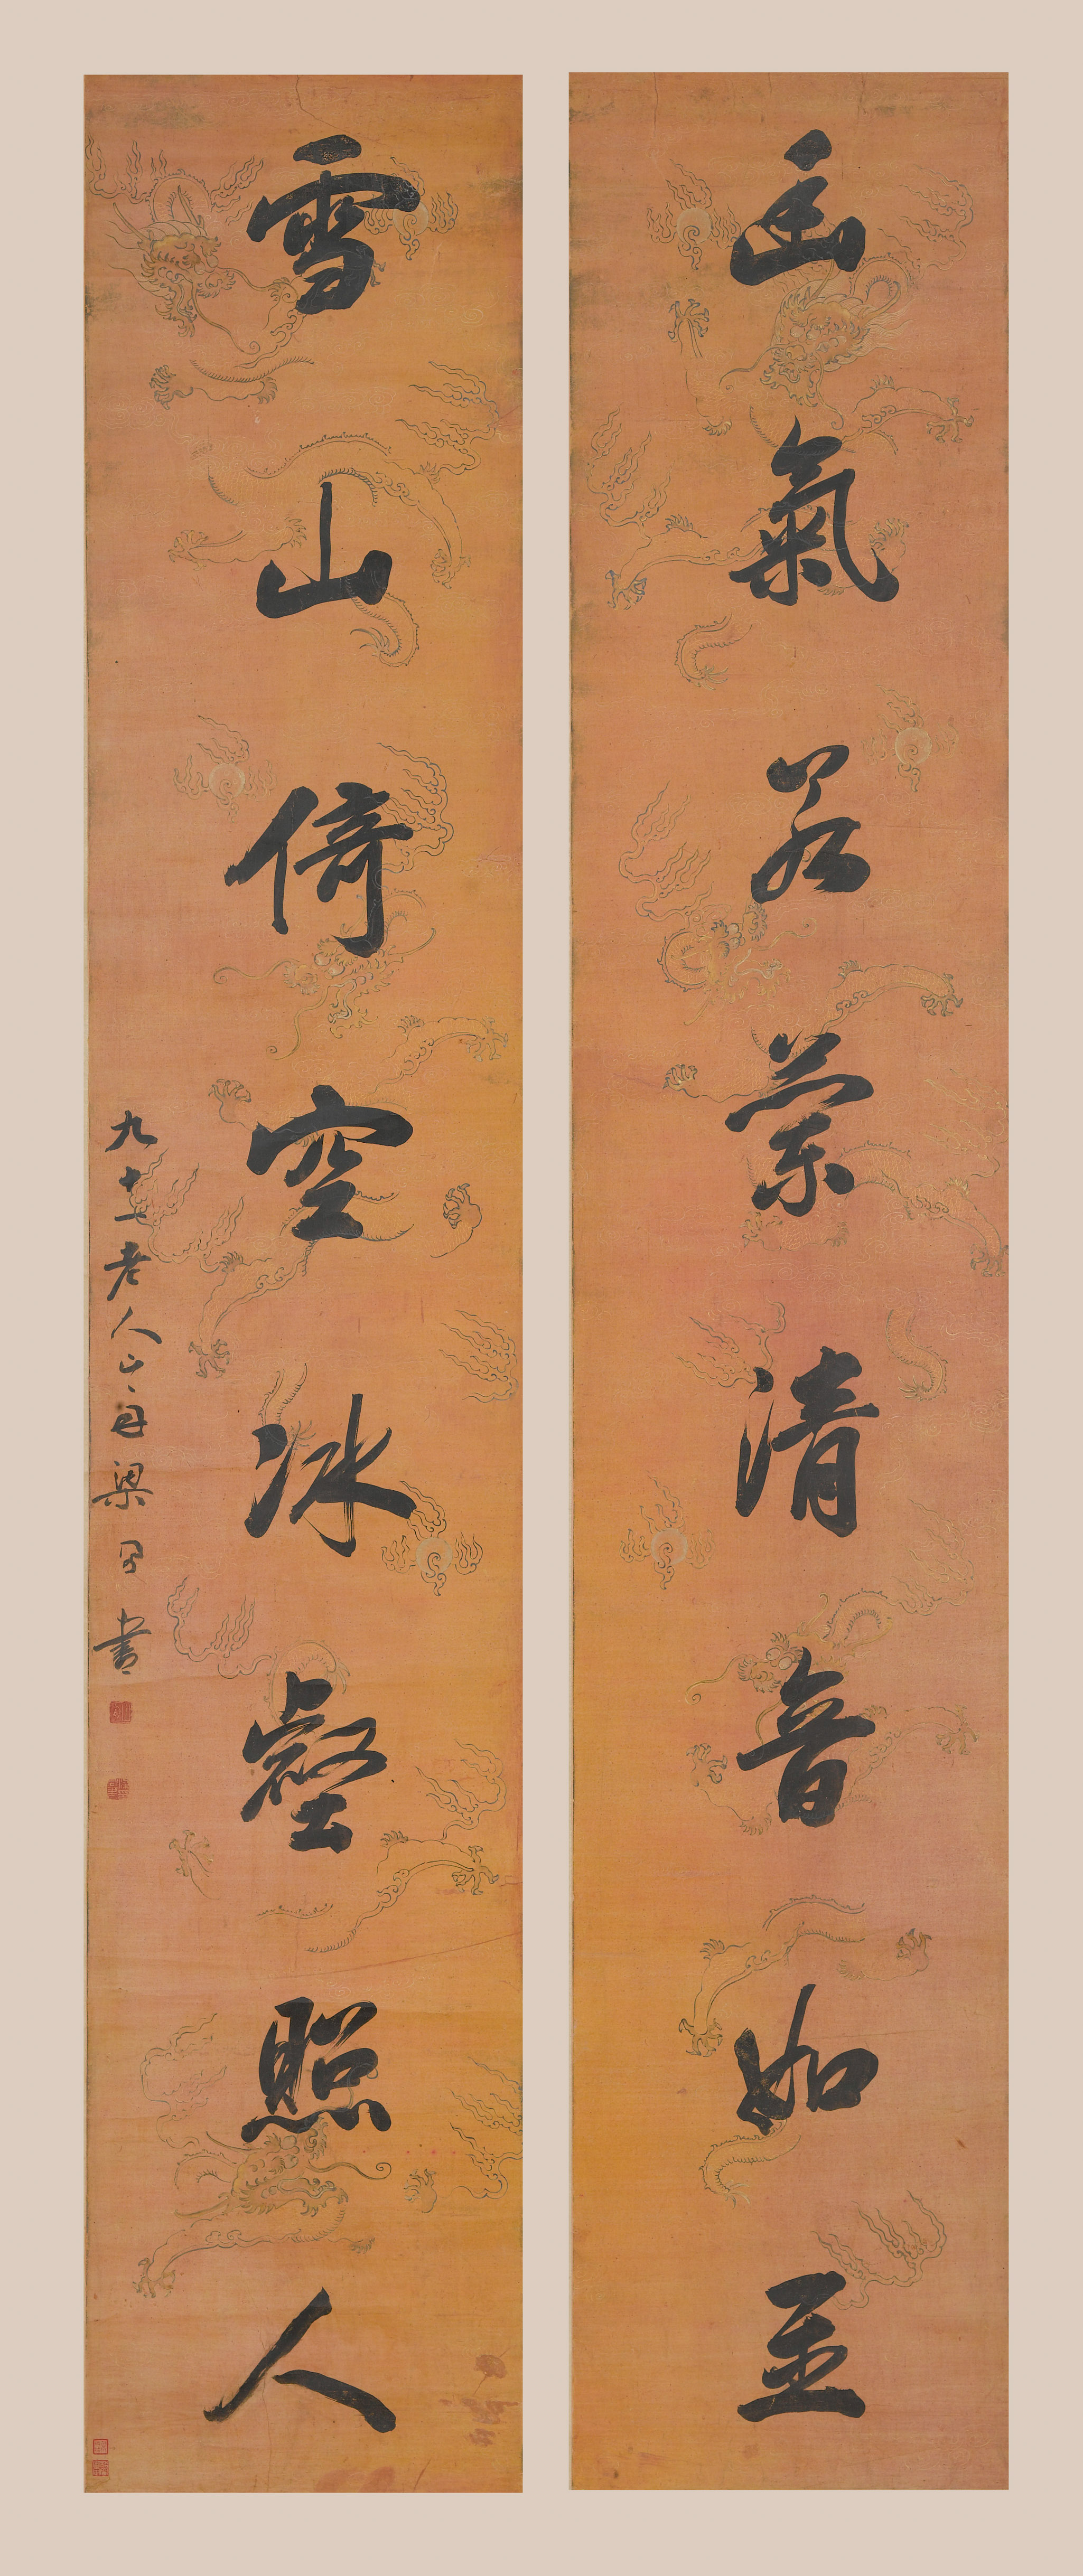 氣若蘭清音如玉
雪山倚空冰壑照人
九十一老人山舟梁同書